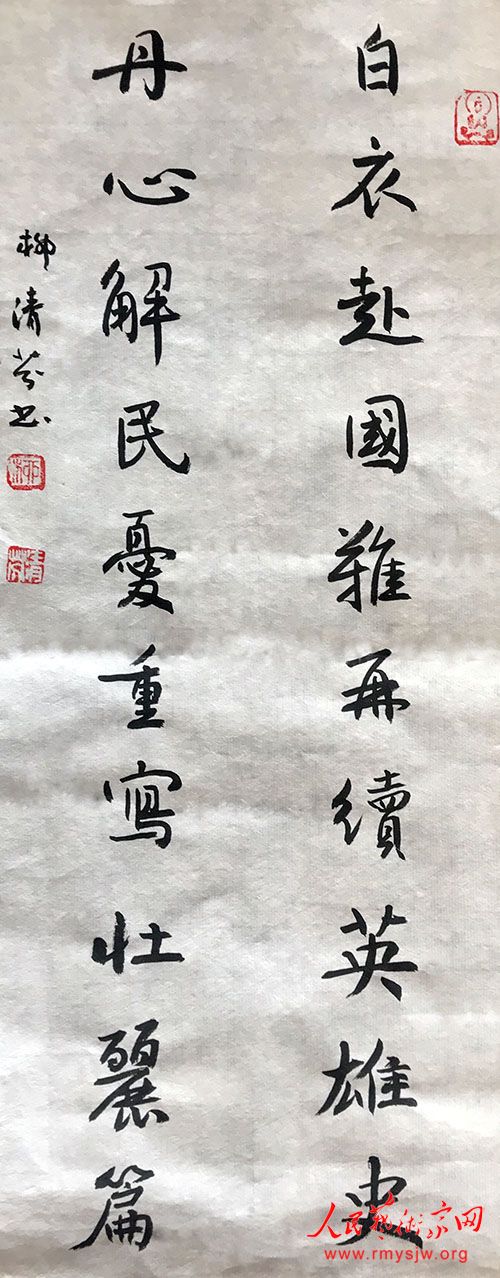 白衣赴國難再續英雄史
丹心解民憂重寫壯麗篇
柳清芬书
人民藝術家网
www.rmysjw.org